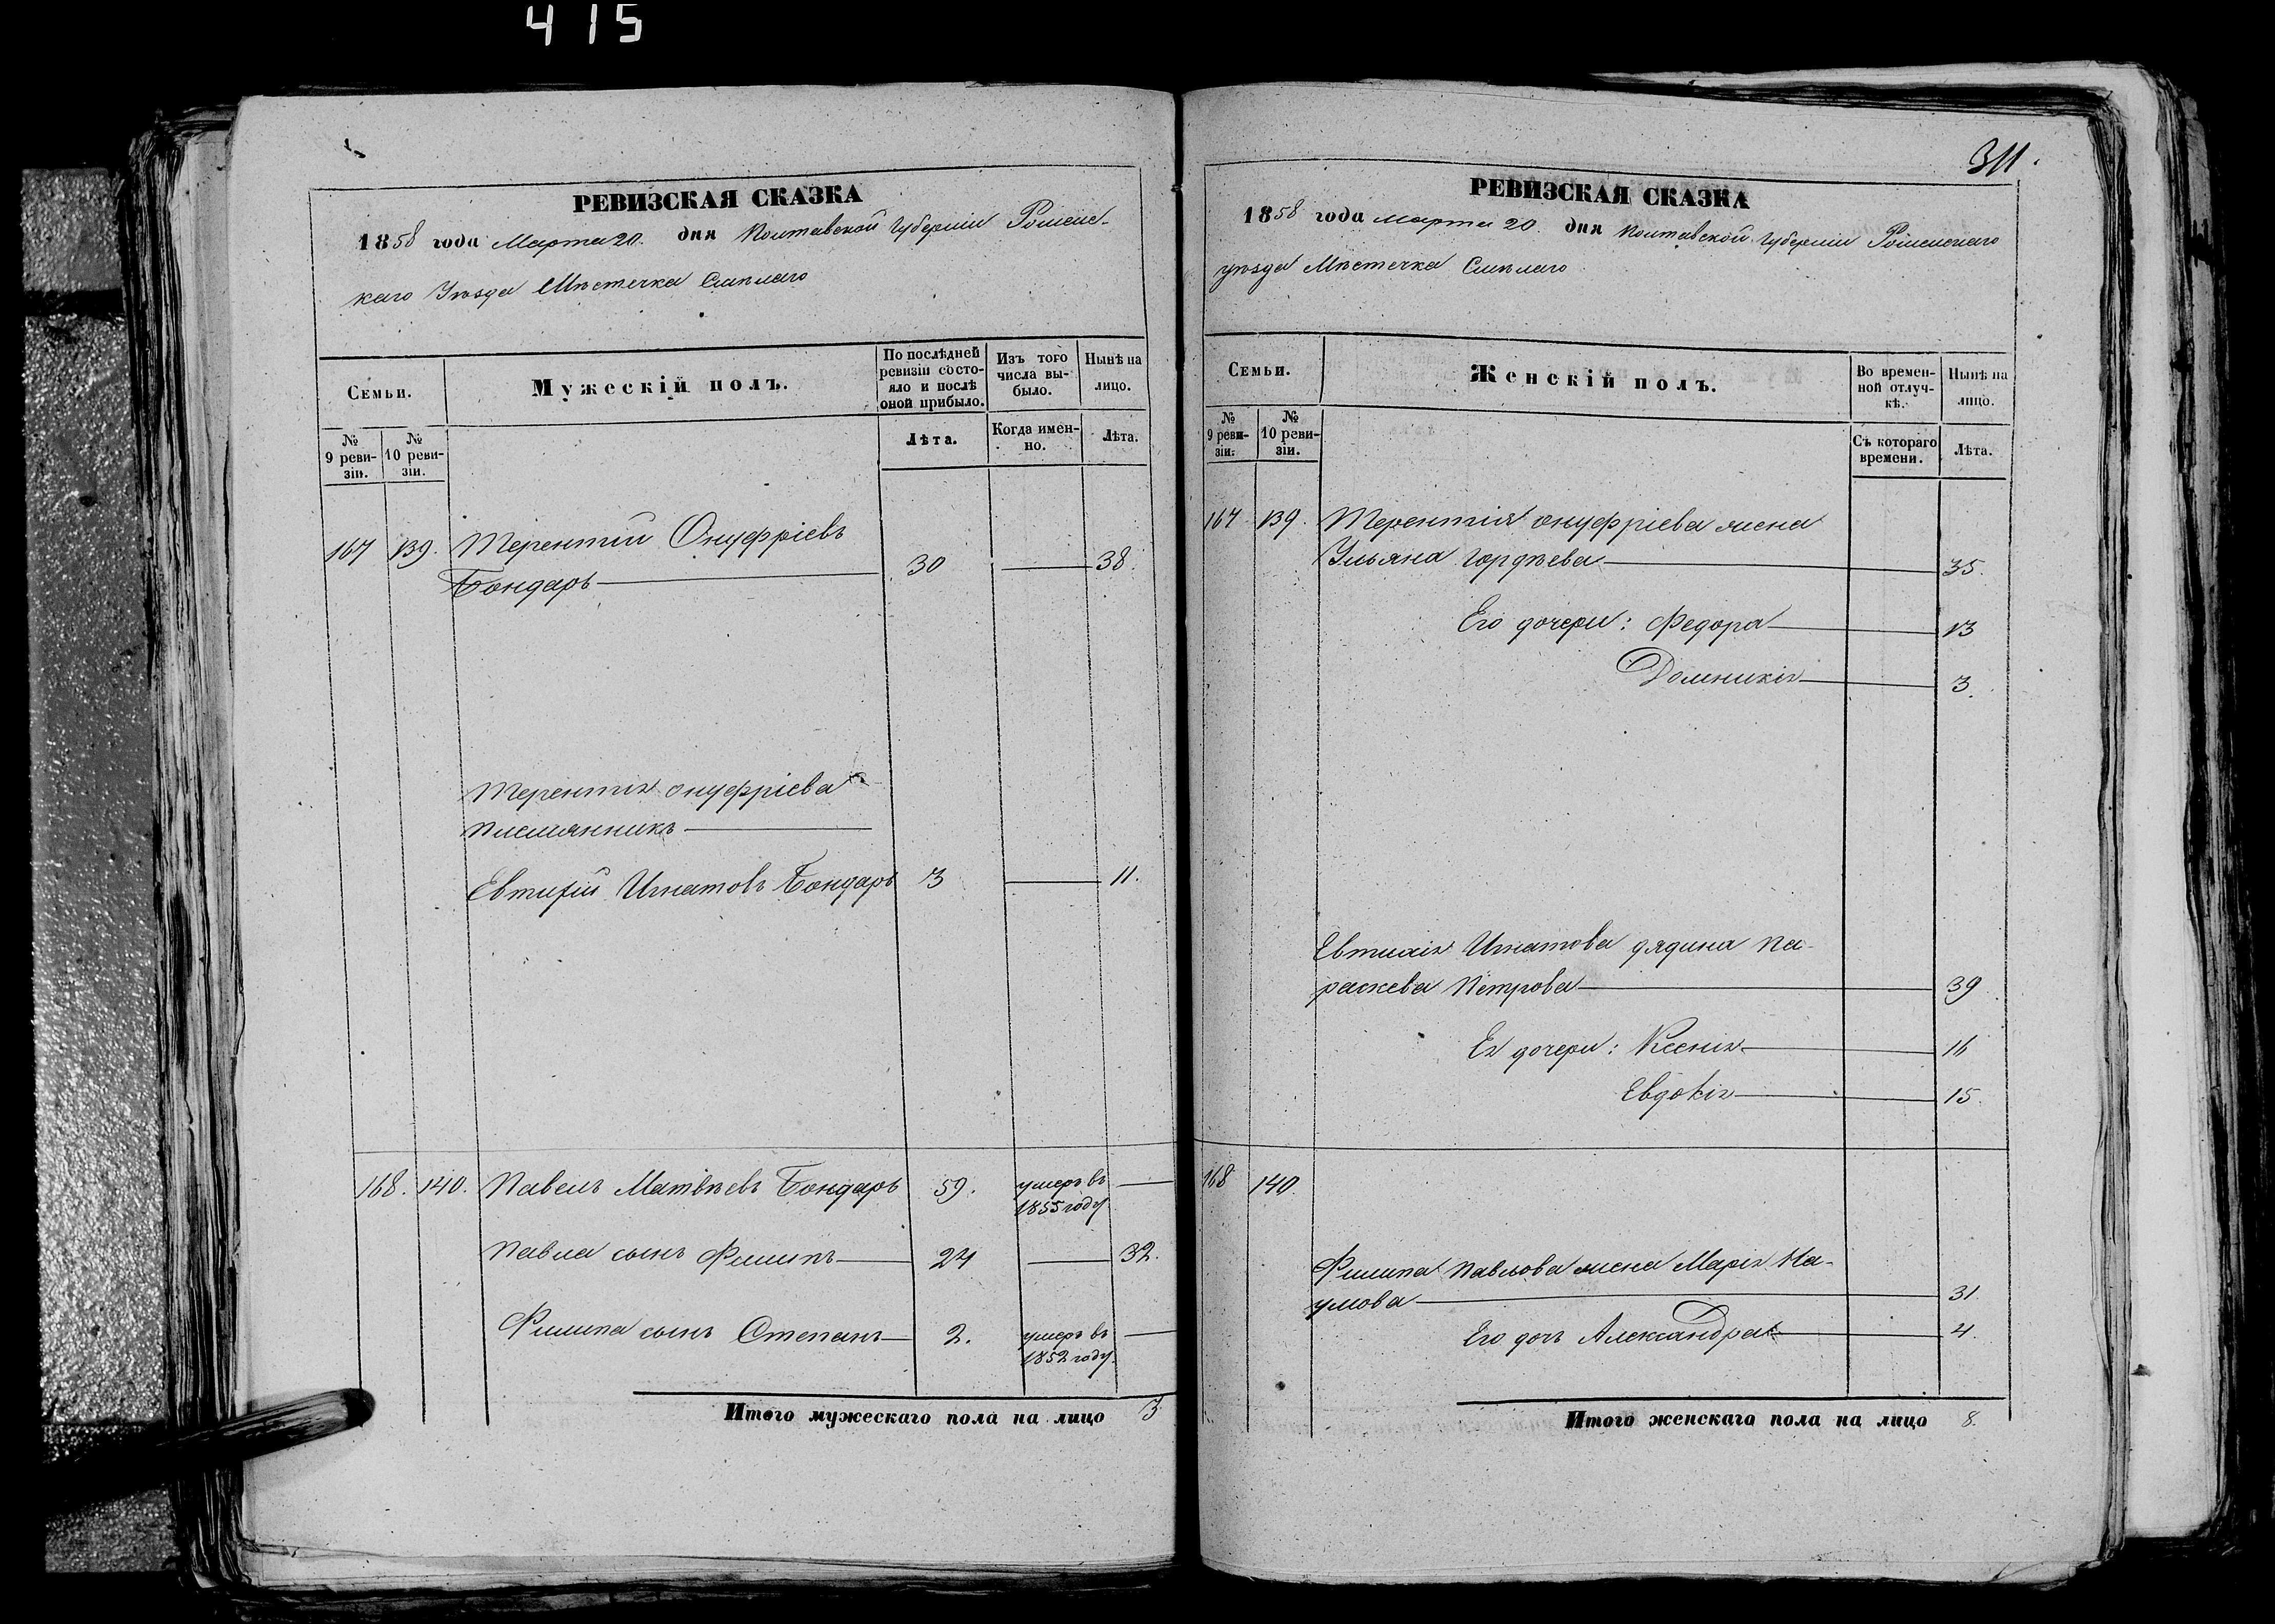 415
РЕВИЗСКАЯ СКАЗКА
1858 года Марта 20. дня Полтавской Губерніи Роменс-
каго Уѣзда Мѣстечка Смѣлаго
Семьи.
Мужескій полъ.
По послѣдней ревизіи состояло и послѣ оной прибыло.
Изъ того числа выбыло.
Нынѣ на лицо.
№ 9 ревизіи.
№ 10 ревизіи.
Лѣта.
Когда именно.
Лѣта.
167 139. Терентій Онуфріевъ
Бондарь 30 38.
Терентія Онуфріева
племянникъ
Евтихій Игнатовъ Бондарь 3 11.
168. 140. Павелъ Матвѣевъ Бондарь 59. умеръ въ
1855 году
Павла сынъ Филипъ 24 32.
Филипа сынъ Степанъ 2. умеръ въ
1852 году.
Итого мужескаго пола на лицо 3
311.
РЕВИЗСКАЯ СКАЗКА
1858 года марта 20. дня Полтавской Губерніи Роменскаго
уѣзда Мѣстечка Смѣлаго
Семьи.
Женскій полъ.
Во временной отлучкѣ.
Нынѣ на лицо.
№ 9 ревизіи.
№ 10 ревизіи.
Съ котораго времени.
Лѣта.
167 139. Терентія Онуфріева жена
Ульяна Гордѣева 35.
Его дочери: Федора 13
Домникія 3.
Евтихія Игнатова дядина Па-
раскева Петрова 39
Ея дочери: Ксенія 16
Евдокія 15.
168 140.
Филипа Павлова жена Марія На-
умова 31
Его дочь Александра 4.
Итого женскаго пола на лицо 8.